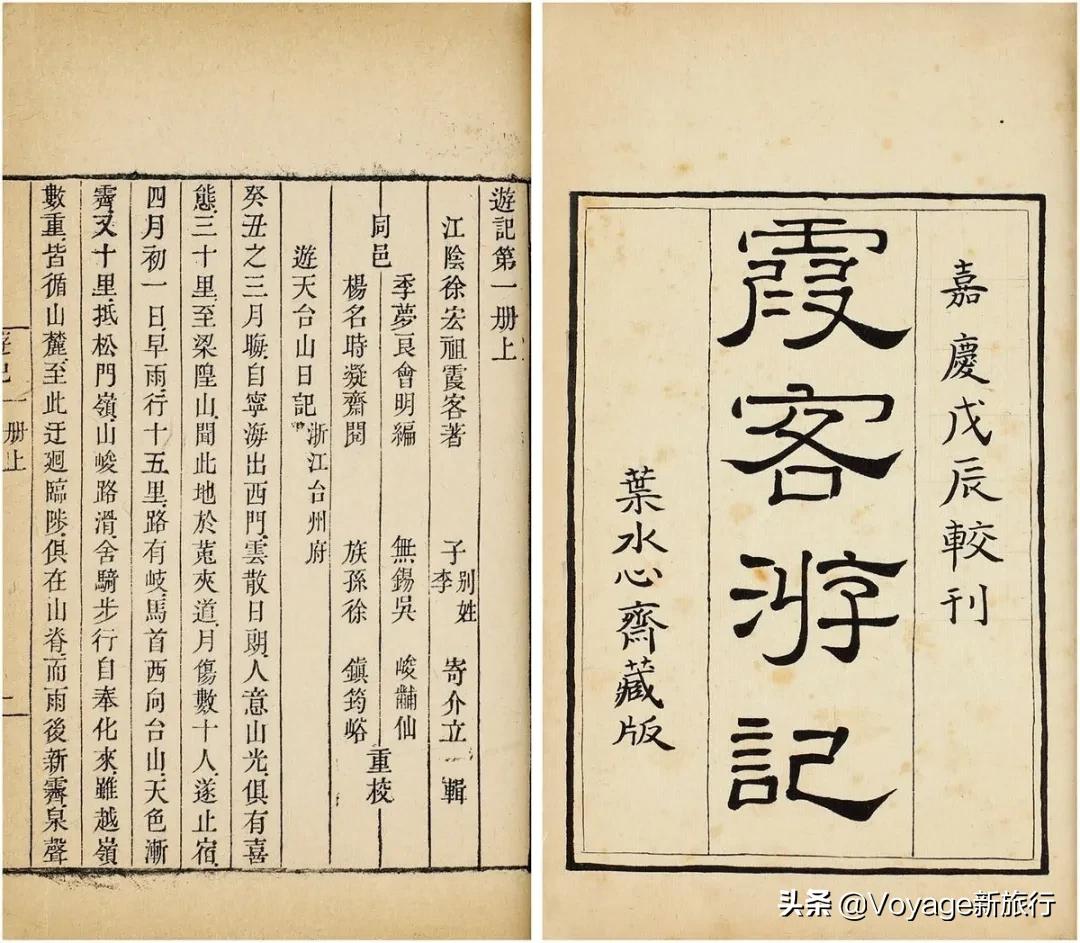 嘉慶戊辰較刊
霞客游記
葉水心齋藏版
遊記第一册上
江陰徐宏祖霞客著 子李别姓寄介立輯
同邑 季夢良會明編 無錫吳峻黼仙
楊名時凝齋閱 族孫徐鎮筠峪 重校
遊天台山日記 浙江台州府
癸丑之三月晦自寧海出西門雲散日朗人意山光俱有喜
態三十里至梁隍山聞此地於菟夾道月傷數十人遂止宿
四月初一日早雨行十五里路有岐馬首西向台山天色漸
霽又十里抵松門嶺山峻路滑舍騎步行自奉化來雖越嶺
數重皆循山麓至此迂迴臨陟俱在山脊而雨後新霽泉聲
遊記一册上
一
头条 @Voyage新旅行